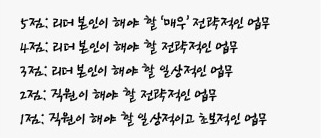 5점: 리더 본인이 해야 할 ‘매우’ 전략적인 업무
4점: 리더 본인이 해야 할 전략적인 업무
3점: 리더 본인이 해야 할 일상적인 업무
2점: 직원이 해야 할 전략적인 업무
1점: 직원이 해야 할 일상적이고 초보적인 업무